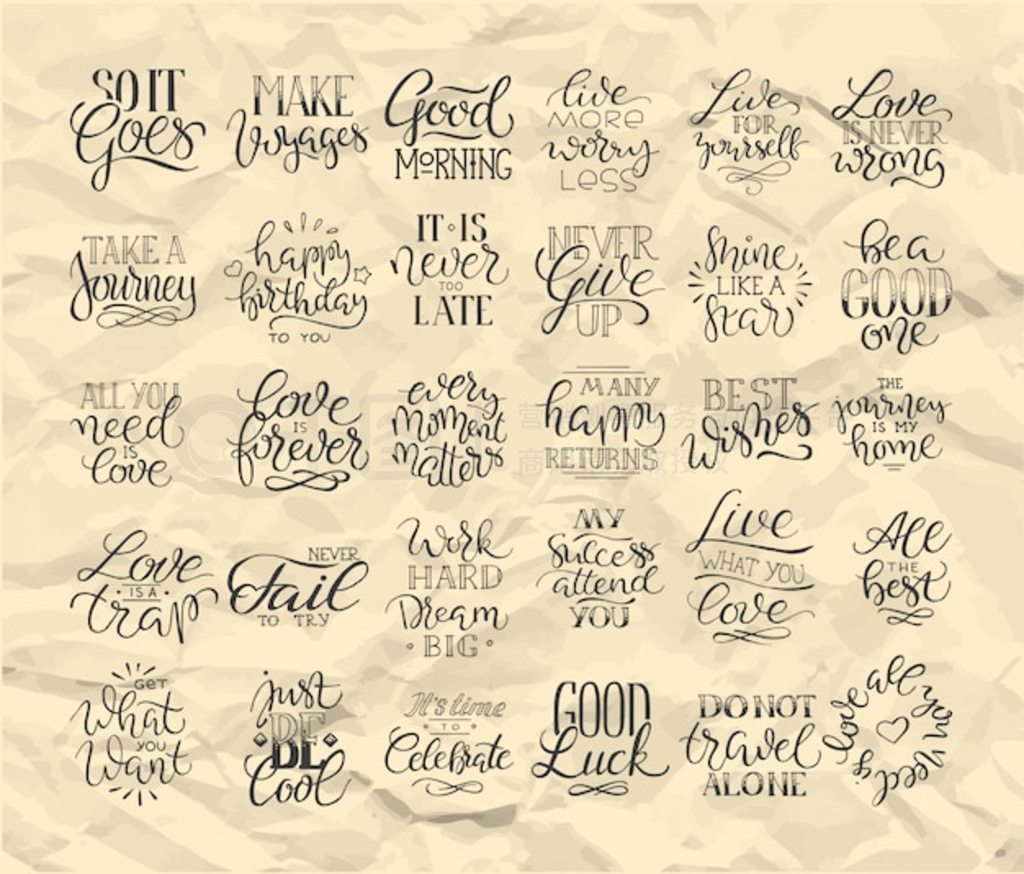 SO IT
Goes
MAKE
Voyages
Good
MORNING
live
MORE
worry
LESS
Live
FOR
yourself
Love
IS NEVER
wrong
TAKE A
Journey
happy
birthday
TO YOU
IT IS
never
TOO
LATE
NEVER
Give
UP
Shine
LIKE A
Star
be a
GOOD
one
ALL YOU
need
IS
love
love
IS
forever
every
moment
matters
MANY
happy
RETURNS
BEST
wishes
THE
journey
IS MY
home
Love
IS A
trap
NEVER
Fail
TO TRY
Work
HARD
Dream
BIG
MY
success
attend
YOU
Live
WHAT YOU
love
All
THE
best
GET
What
YOU
Want
just
BE
Cool
It's time
TO
Celebrate
GOOD
Luck
DO NOT
travel
ALONE
love all you need